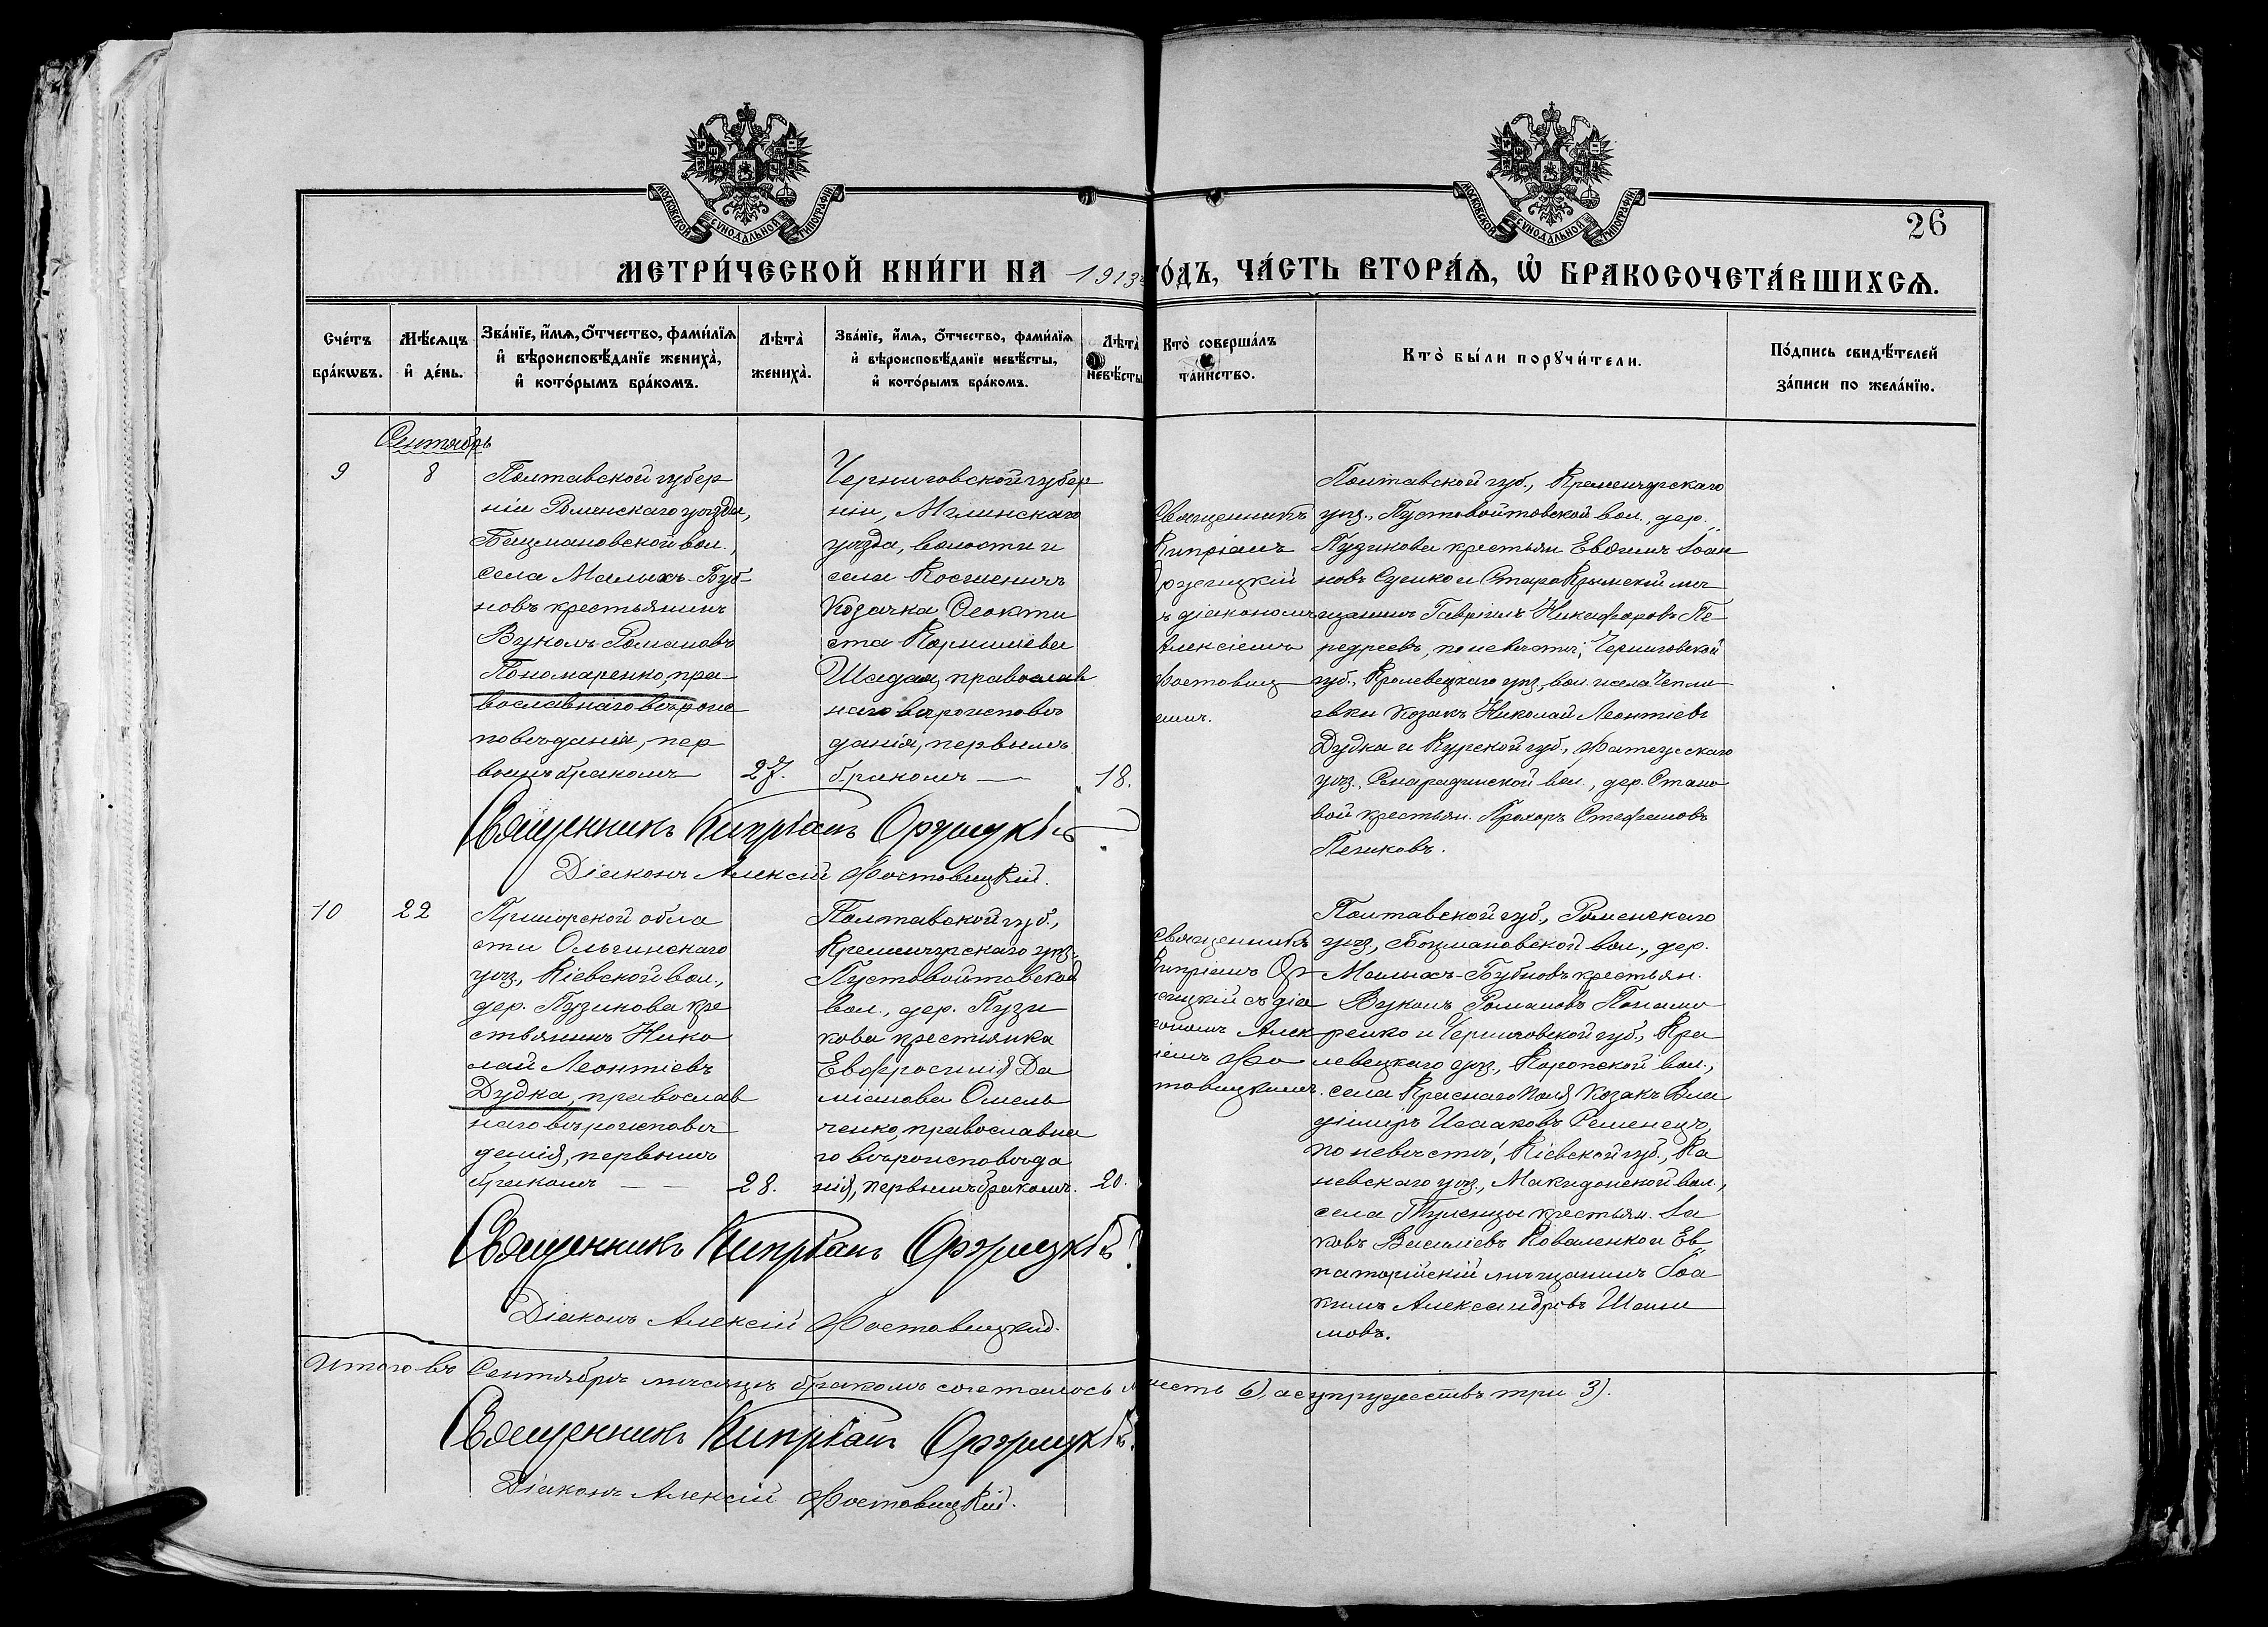 МОСКОВСКОЙ СѴНОДАЛЬНОЙ ТИПОГРАФІИ
МОСКОВСКОЙ СѴНОДАЛЬНОЙ ТИПОГРАФІИ
26
МЕТРИ́ЧЕСКОЙ КНИ́ГИ НА 1913 ГО́ДЪ, ЧА́СТЬ ВТОРА́Ѧ, Ѡ҆ БРАКОСОЧЕТА́ВШИХСѦ.
Сче́тъ бра́кѡвъ.
Мѣ́сѧцъ и҆ де́нь.
Зва́нїе, и҆́мѧ, ѻ҆́тчество, фами́лїѧ и҆ вѣроисповѣ́данїе жениха̀, и҆ кото́рымъ бра́комъ.
Лѣ́та̀ жениха̀.
Зва́нїе, и҆́мѧ, ѻ҆́тчество, фами́лїѧ и҆ вѣроисповѣ́данїе невѣ́сты, и҆ кото́рымъ бра́комъ.
Лѣ́та̀ невѣ́сты
Кто̀ соверша́лъ та́инство.
Кто̀ бы́ли порꙋчи́тели.
По́дпись свидѣ́телей за́писи по жела́нїю.
Сентябрь
9
8
Полтавской губер
ніи Роменскаго уѣзда,
Бацмановской вол.,
села Малыхъ-Буб-
новъ крестьянинъ
Вуколъ Романовъ
Пономаренко, пра-
вославнаго вѣроис
повѣданія, пер
вымъ бракомъ
27.
Черниговской губер
ніи, Мглинскаго
уѣзда, волости и
села Костеничъ
козачка Ѳеокти
ста Корнилиева
Шадая, православ
наго вѣроисповѣ
данія, первымъ
бракомъ
18.
Священникъ
Кипріанъ
діакономъ
Алексіемъ
Фастовиц
Полтавской губ., Кременчугскаго
уѣз., Пустовойтовской вол., дер.
Пузикова крестьян Евѳимъ Іоан
новъ и СтароКрымскій мѣ
щанинъ Гавріилъ Никифоровъ Пе-
редреевъ, по невѣстѣ; Черниговской
губ., Кролевецкаго уѣз., вол. и села Чепли
евки козакъ Николай Леонтіевъ
Дудка и Курской губ., Фатежскаго
уѣз., вол., дер. Стано
вой крестьян. Прохоръ Стефановъ
Пениковъ.
Священникъ Кипріанъ Оржицкій
Діаконъ Алексій Фастовицкій.
10
22
Приморской обла
сти Ольгинскаго
уѣз., Кіевской вол.,
дер. Пузикова кре
стьянинъ Нико
лай Леонтіевъ
Дудка, православ
наго вѣроисповѣ
данія, первымъ
бракомъ
28.
Полтавской губ.,
Кременчугскаго уѣз.
Пустовойтовской
вол., дер. Пузи
кова крестьянка
Евфросинія Да
міанова Омель
ченко, православна
го вѣроисповѣда
нія, первымъ бракомъ.
20.
Священникъ
Кипріанъ Ор
жицкій съ діа
кономъ Алек
сіемъ Фа
стовицкимъ.
Полтавской губ., Роменскаго
уѣз., Бацмановской вол., дер.
Малыхъ-Бубновъ крестьян.
Вуколъ Романовъ Понома
ренко и Черниговской губ., Кро
левецкаго уѣз., Коропской вол.,
села Краснаго Поля козакъ Вла
диміръ Исааковъ Семенецъ,
по невѣстѣ; Кіевской губ., Ка
невскаго уѣз., Макидонской вол.,
села Тулинцы крестьян. Іа
ковъ Василіевъ Коваленко и Ев
паторійскій мѣщанинъ Іоа
кимъ Александровъ Шаши
мовъ.
Священникъ Кипріанъ Оржицкій
Діаконъ Алексій Фастовицкій.
Итого въ Сентябрѣ мѣсяцѣ бракомъ сочеталось шесть 6), а супружествъ три 3).
Священникъ Кипріанъ Оржицкій
Діаконъ Алексій Фастовицкій.